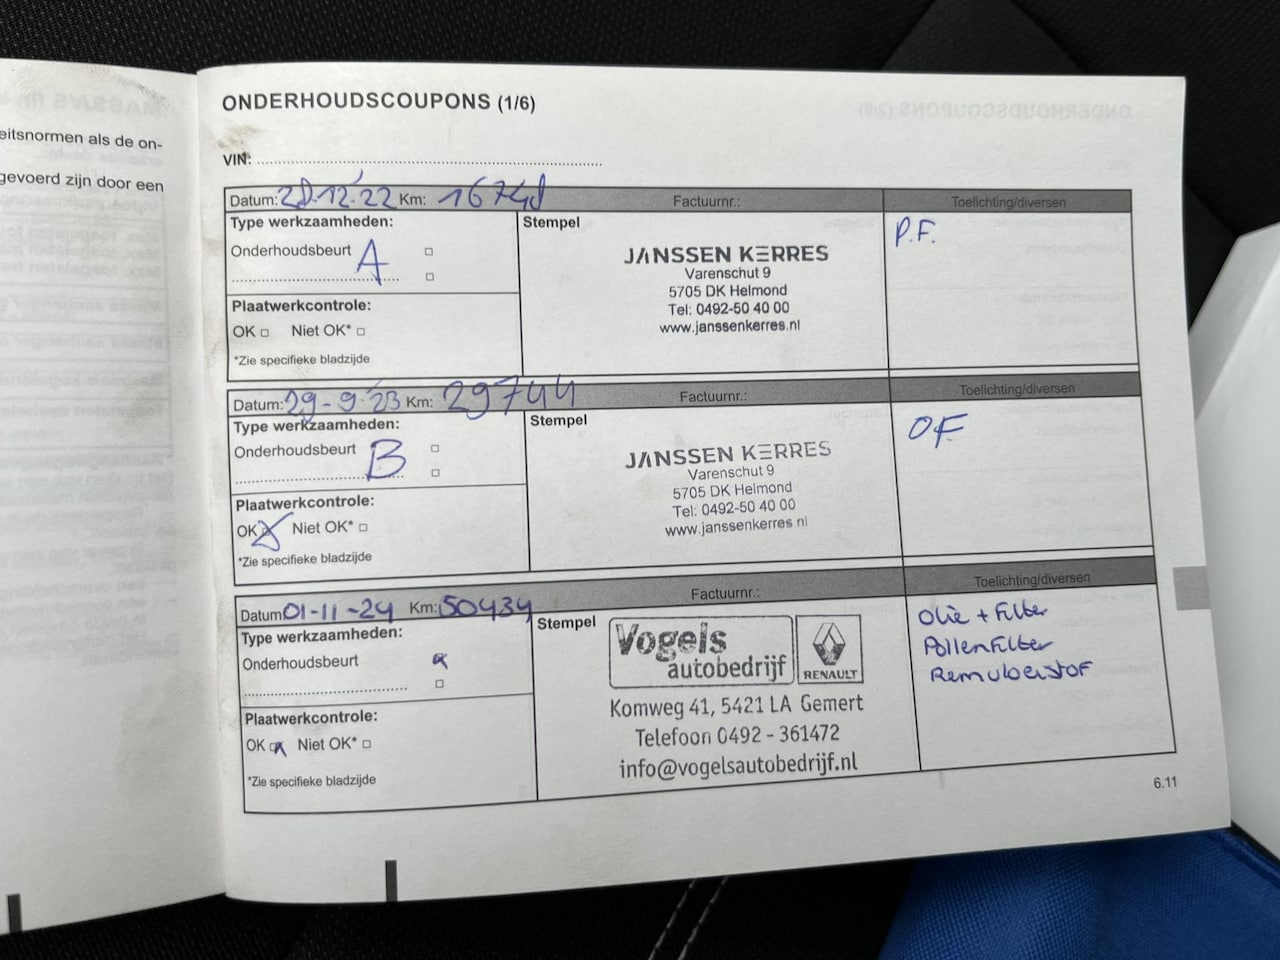 eitsnormen als de on-
gevoerd zijn door een
ONDERHOUDSCOUPONS (1/6)
VIN:
Datum: 20.12.22 Km: 16740 Factuurnr.: Toelichting/diversen
Type werkzaamheden: Stempel P.F.
Onderhoudsbeurt A
JANSSEN KERRES
Varenschut 9
5705 DK Helmond
Tel: 0492-50 40 00
www.janssenkerres.nl
Plaatwerkcontrole:
OK Niet OK*
*Zie specifieke bladzijde
Datum: 29-9-23 Km: 29744 Factuurnr.: Toelichting/diversen
Type werkzaamheden: Stempel OF
Onderhoudsbeurt B
JANSSEN KERRES
Varenschut 9
5705 DK Helmond
Tel: 0492-50 40 00
www.janssenkerres.nl
Plaatwerkcontrole:
OK Niet OK*
*Zie specifieke bladzijde
Datum 01-11-24 Km: 50434 Factuurnr.: Toelichting/diversen
Type werkzaamheden: Stempel
Onderhoudsbeurt
Vogels
autobedrijf
RENAULT
Komweg 41, 5421 LA Gemert
Telefoon 0492 - 361472
info@vogelsautobedrijf.nl
Olie + Filter
Pollenfilter
Remvloeistof
Plaatwerkcontrole:
OK Niet OK*
*Zie specifieke bladzijde
6.11